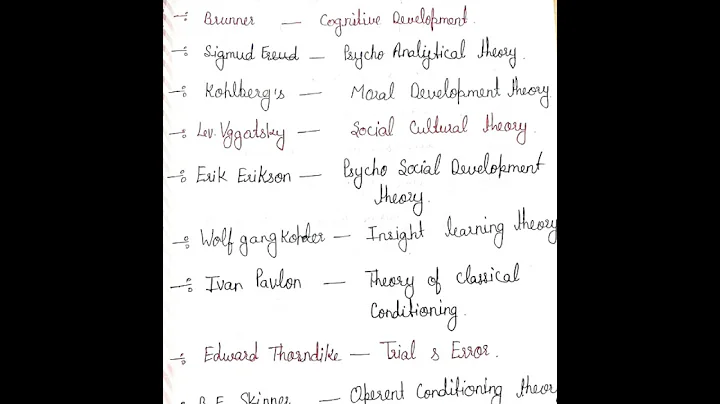 Brunner — Cognitive Development.
Sigmud Freud — Psycho Analytical theory.
Kohlberg's — Moral Development theory
Lev. Vggatsky — Social Cultural theory.
Erik Erikson — Psycho Social Development
theory.
Wolf gang Kohder — Insight learning theory
Ivan Pavlon — Theory of classical
Conditioning.
Edward Thorndike — Trial & Error.
B.F. Skinner — Operent Conditioning theor